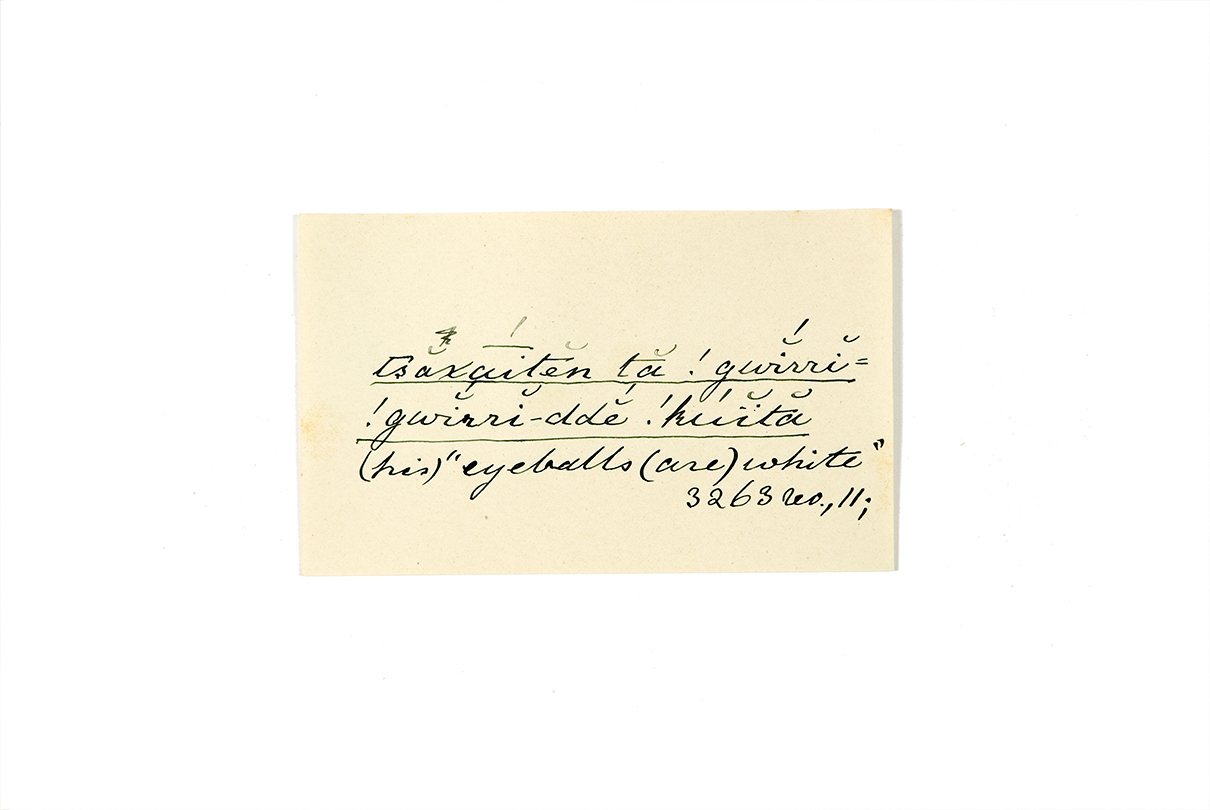 tsăxăitĕn tă ! gwĭrrĭ=
! gwĭrrĭ-ddĕ ! kúĭtă
(his) "eyeballs (are) white"
3263 rev., 11;